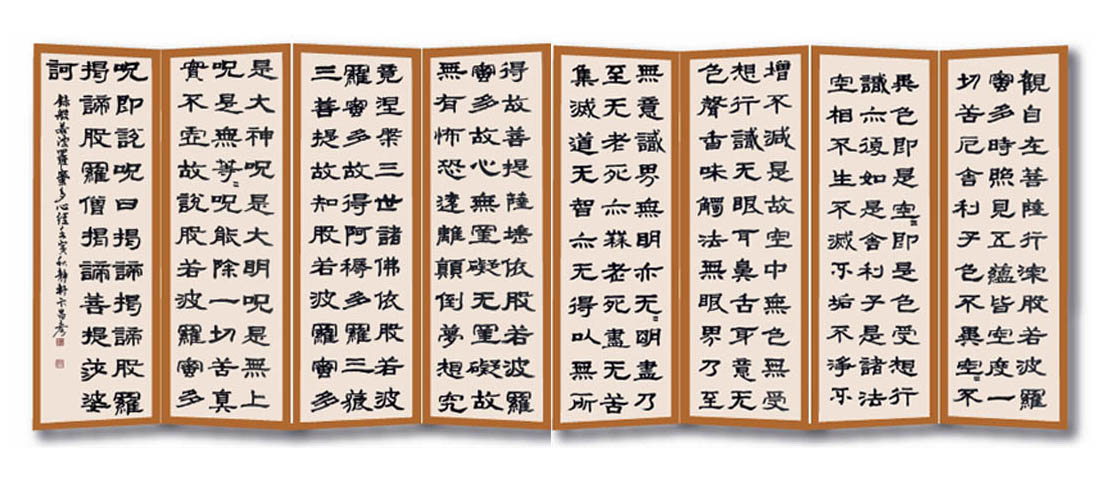 觀自在菩薩行深般若波羅
蜜多時照見五蘊皆空度一
切苦厄舍利子色不異空〻不
異色即是空〻即是色受想行
識亦復如是舍利子是諸法
空相不生不滅不垢不淨不
增不減是故空中無色無受
想行識无眼耳鼻舌身意无
色聲香味觸法無眼界乃至
無意識界無明亦无〻明盡乃
至无老死亦無老死盡无苦
集滅道无智亦无得以無所
得故菩提薩埵依般若波羅
蜜多故心無罣礙无罣礙故
無有怖恐遠離顛倒夢想究
竟涅槃三世諸佛依般若波
羅蜜多故得阿耨多羅三藐
三菩提故知般若波羅蜜多
是大神呪是大明呪是無上
呪是無等〻呪能除一切苦真
實不虛故說般若波羅蜜多
呪即說呪曰揭諦揭諦般羅
揭諦般羅僧揭諦菩提娑婆
訶
錄般若波羅蜜多心經 寅秋靜軒卞昌